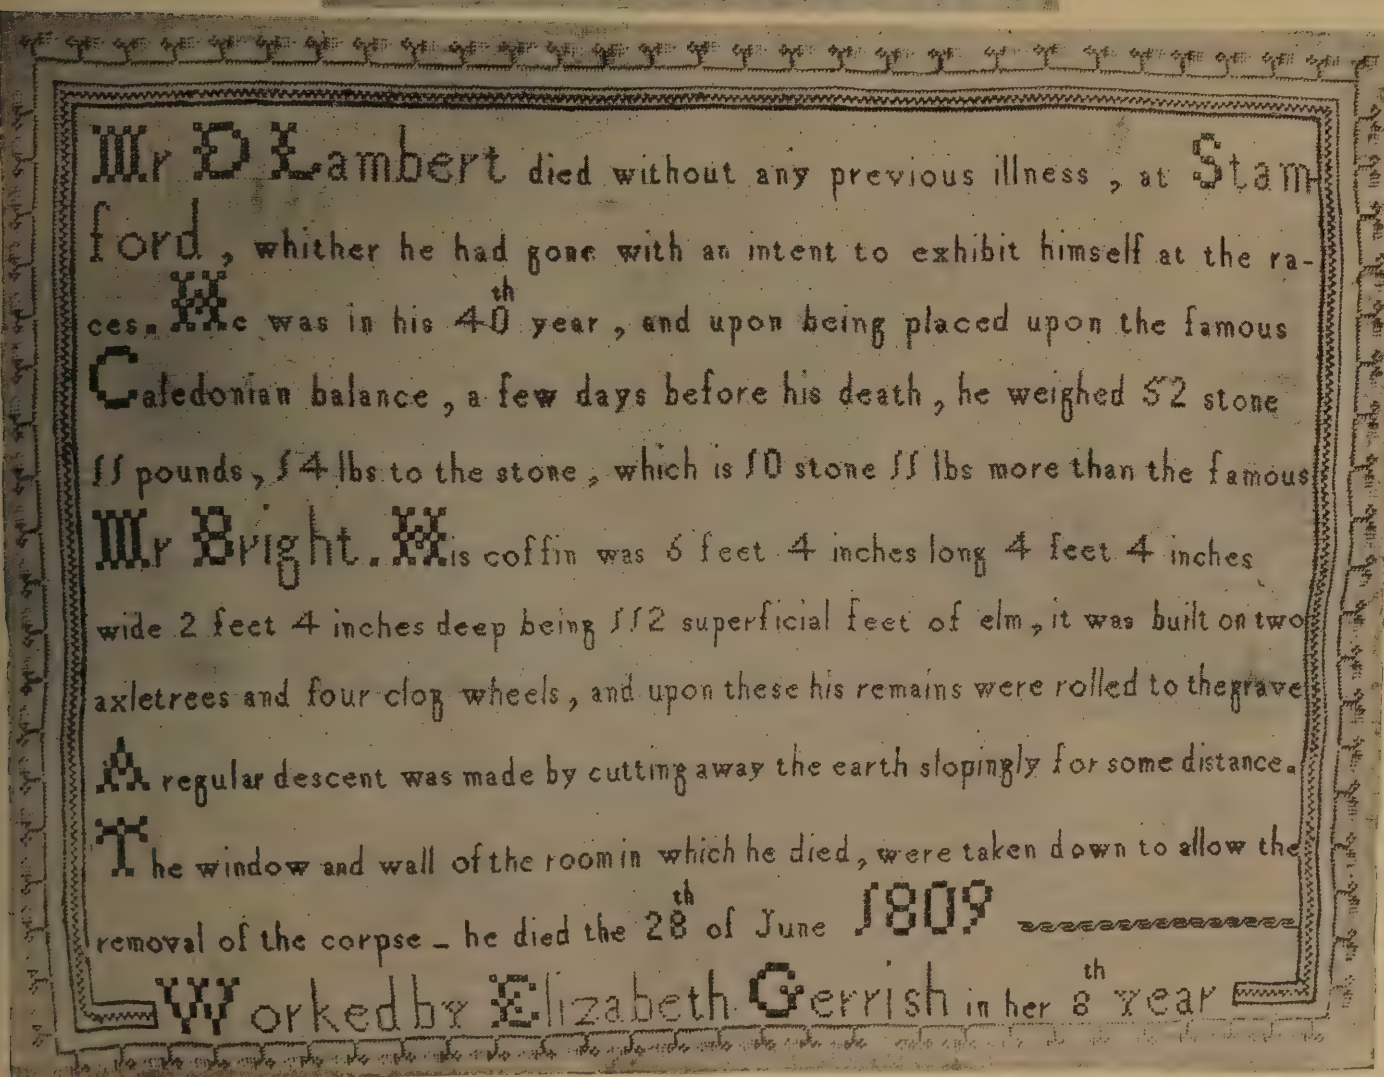 Mr D Lambert died without any previous illness , at Stam-
ford , whither he had gone with an intent to exhibit himself at the ra-
ces. He was in his 40th year , and upon being placed upon the famous
Caledonian balance , a few days before his death , he weighed 52 stone
11 pounds , 14 lbs to the stone , which is 10 stone 11 lbs more than the famous
Mr Bright . His coffin was 6 feet 4 inches long 4 feet 4 inches
wide 2 feet 4 inches deep being 112 superficial feet of elm , it was built on two
axletrees and four clog wheels , and upon these his remains were rolled to the grave
A regular descent was made by cutting away the earth slopingly for some distance .
The window and wall of the room in which he died , were taken down to allow the
removal of the corpse – he died the 28th of June 1809
Worked by Elizabeth Gerrish in her 8th Year